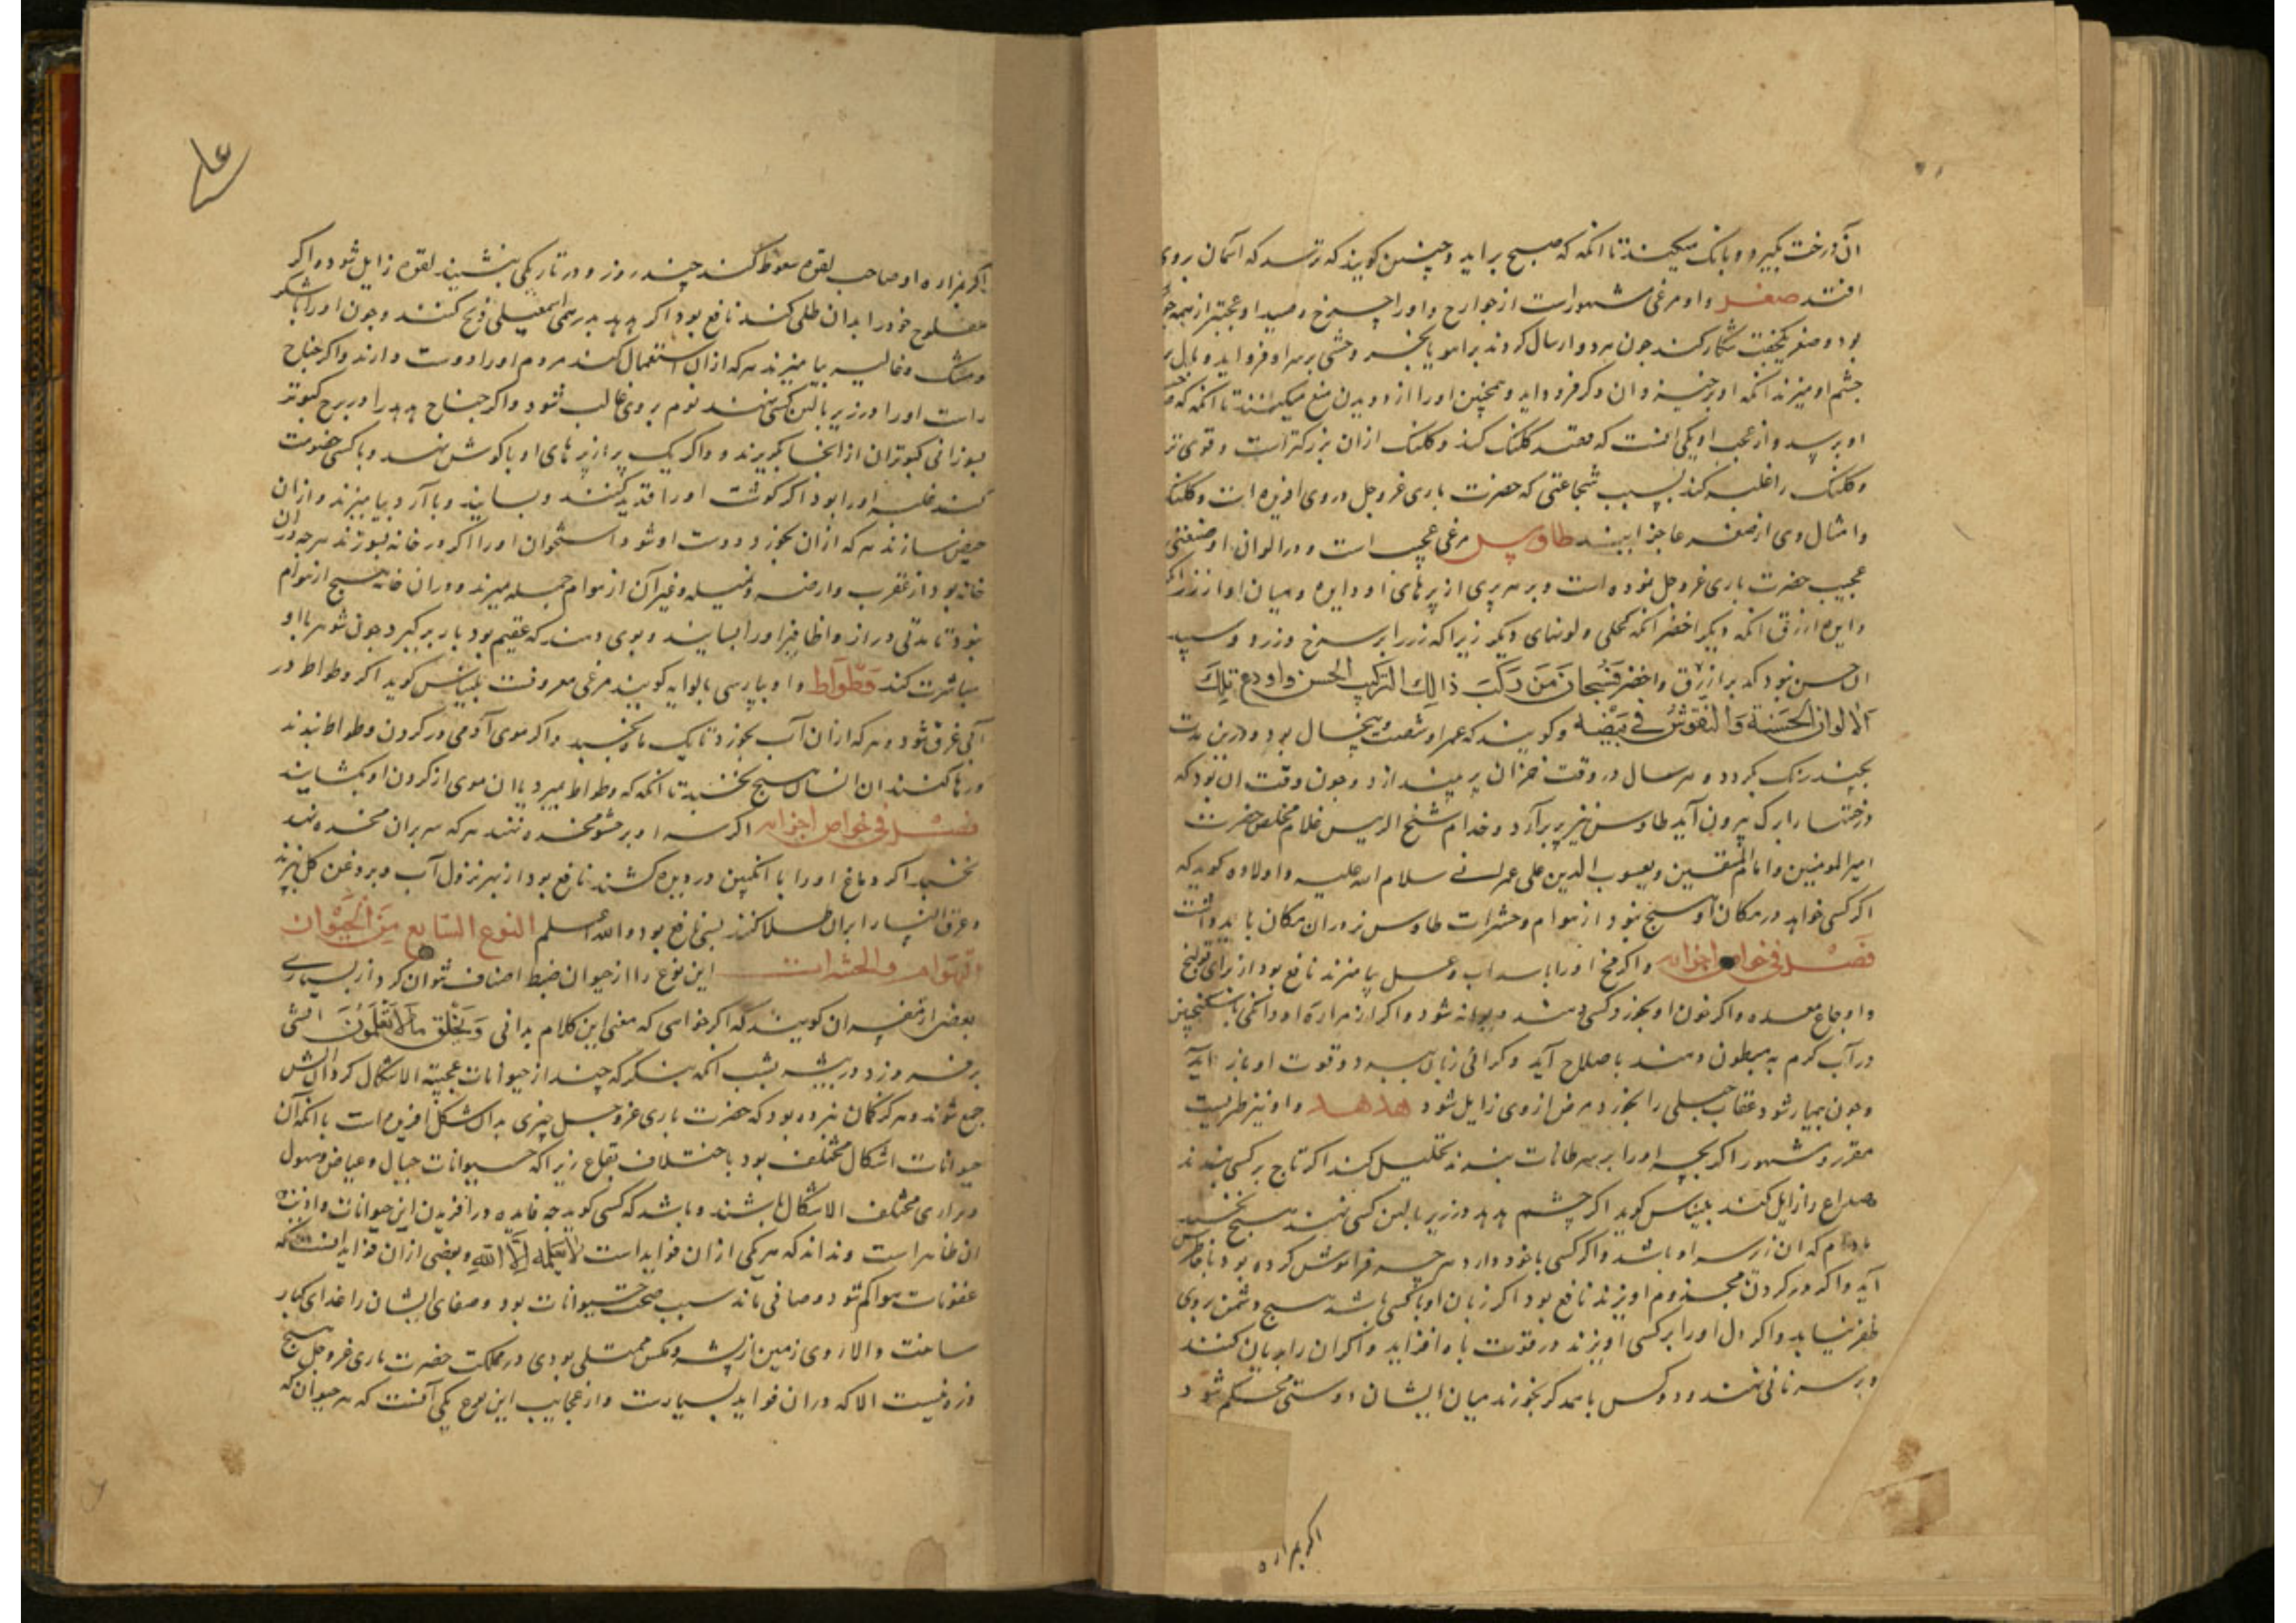 آن درخت بگیرد و بانک میکند تا انکه که صبح براید و چنین کویند که ترسد که آسمان بروی
افتد صقر و او مرغی مشهور است از جوارح و او را چرخ و صید او عجبتر از همه جوا
بود دو صقر بیکجفت شکار کنند جون هر دو ارسال کردند بر اهو یا بخر وحشی بر سر او فرود اید و بال بر
چشم او میزند انکه او برخیزد و ان دکر فرود اید و همچنین او را از دویدن منع میکنند تا انکه که
او برسد و از عجب او یکی انست که قصد کلنک کند و کلنک ازان بزرکتر است و قوی تر
و کلنک را غلبه کند بسبب شجاعتی که حضرت باری عز و جل در وی افریده است و کلنک
و امثال وی از صقر عاجز ایند طاوس مرغی عجیب است و در الوان او صنعتی
عجیب حضرت باری عز و جل نموده است و بر هر پری از پرهای او دایره و میان او از زر
دایره ازرق انکه دیکر اخضر انکه کحلی و لونهای دیکر زیرا که زر را بر سرخ و زرد و سپید
ان حسن نبود که بر ازرق و اخضر فسبحان من رکب ذالك الترکیب الحسن و اودع تلك
الالوان الحسنة و النقوش فی بیضه و کویند که عمر او بیست و پنج سال بود و درین مدت
بچند رنک کردد و هر سال در وقت خزان پر بیندازد و جون وقت ان بود که
درختها را برک بیرون آید طاوس نیز پر برآرد و خدام شیخ الریس غلام مخلص حضرت
امیر المومنین و امام المتقین و یعسوب الدین علی عمرانی سلام الله علیه و اولاده کوید که
اکر کسی خواهد در مکان او هیچ نبود از هوام و حشرات طاوس نر دران مکان باید داشت
فصل فی خواص اجزایه و اکر مخ او را با سداب و عسل بیامیزند نافع بود از برای قولنج
و اوجاع معده و اکر خون او بخورد کسی دهند دیوانه شود و اکر از مراره او دانکی با سکنجبین
در آب کرم به مبطون دهند باصلاح آید و کرانی زبان ببرد و قوت او باز آید
و جون بیمار شود عقاب جبلی را بخورد مرض از وی زایل شود هدهد و او نیز طیریست
مقرر و مشهور اکر بچه او را بر سرطانات بندند تحلیل کند اکر تاج بر کسی بندند
صداع را زایل کند بلیناس کوید اکر چشم هدهد در زیر بالین کسی نهند هیچ نخسبد
مادام که ان زیر سر او باشد و اکر کسی با خود دارد هر چه فراموش کرده بود با خاطرش
آید و اکر در کردن مجذوم اویزند نافع بود اکر زبان او با کسی باشد هیچ دشمن بر وی
ظفر نیابد و اکر دل او را بر کسی اویزند در قوت باه افزاید و اکر ان را بریان کنند
و بر سر نانی نهند و دو کس با همدکر بخورند میان ایشان دوستی محکم شود
اکر بمراره
اکر بمراره او صاحب لقوه سعوط کند چند روز و در تاریکی بنشیند لقوه زایل شود و اکر
مفلوج خود را بدان طلی کند نافع بود اکر هدهد برسم اسمعیلی ذبح کنند و جون او را با شکر
و مشک و غالیه بیامیزند هر که ازان استعمال کند مردم او را دوست دارند و اکر جناح
راست او را در زیر بالین کسی نهند نوم بر وی غالب شود و اکر جناح هدهد را در برج کبوتر
بسوزانی کبوتران از انجا بکریزند و اکر یک پر از پرهای او باکوش نهد و با کسی خصومت
کند غلبه او را بود اکر کوشت او را قدید کنند و بسایند و با آرد بیامیزند و ازان
حیص سازند هر که ازان بخورد دوست او شود استخوان او را اکر در خانه بسوزند هر چه دران
خانه بود از عقرب و ارضه و نمیله و غیر آن از هوام جمله میرند و دران خانه هیچ از هوام
نبود تا مدتی دراز و اظافیر او را بسایند و بوی دهند که عقیم بود بار برکیرد جون شوهر با او
مباشرت کند وطواط و او بپارسی بالوایه کویند مرغی معروفست بلیناس کوید اکر وطواط در
آبی غرق شود و هر که ازان آب بخورد تا یک ماه نخسبد و اکر موی آدمی در کردن وطواط بندند
و رها کنند ان انسان هیچ نخسبد تا انکه که وطواط بمیرد یا ان موی از کردن او بکشایند
فصل فی خواص اجزایه اکر سر او بر حشو مخده نهند هر که سر بران مخده نهد
نخسبد اکر دماغ او را با انکبین در دیده کشند نافع بود از بهر نزول آب و بروغن کل بپزند
و عرق النسا را بران طلا کنند بسی نافع بود و الله اعلم النوع السابع من الحیوان
الهوام و الحشرات این نوع را از حیوان ضبط اصناف نتوان کرد از بسیاری
بعضی از مفسران کویند که اکر خواهی که معنی این کلام بدانی و یخلق ما لا تعلمون اتشی
برفروز در بیشه بشب انکه بنکر که چند از حیوانات عجیبة الاشکال کرد آن اتش
جمع شوند و هرکز کمان نبرده بود که حضرت باری عز و جل چیزی بدان شکل افریده است با انکه آن
حیوانات اشکال مختلف بود باختلاف بقاع زیرا که حیوانات جبال و غیاض و سهول
و براری مختلف الاشکال باشند و باشد که کسی کوید چه فایده در افریدن این حیوانات و اذیت
ان ظاهر است و نداند که هر یکی ازان فواید است لا یعلمه الا الله و بعضی ازان فواید انست که
عفونات هوا کم شود و صافی ماند سبب صحت حیوانات بود و صفای ایشان را غذای کبار
ساخت و الا روی زمین از پشه و مکس ممتلی بودی در مملکت حضرت باری عز و جل هیچ
ذره نیست الا که دران فواید بسیارست و از عجایب این نوع یکی آنست که هر حیوان که